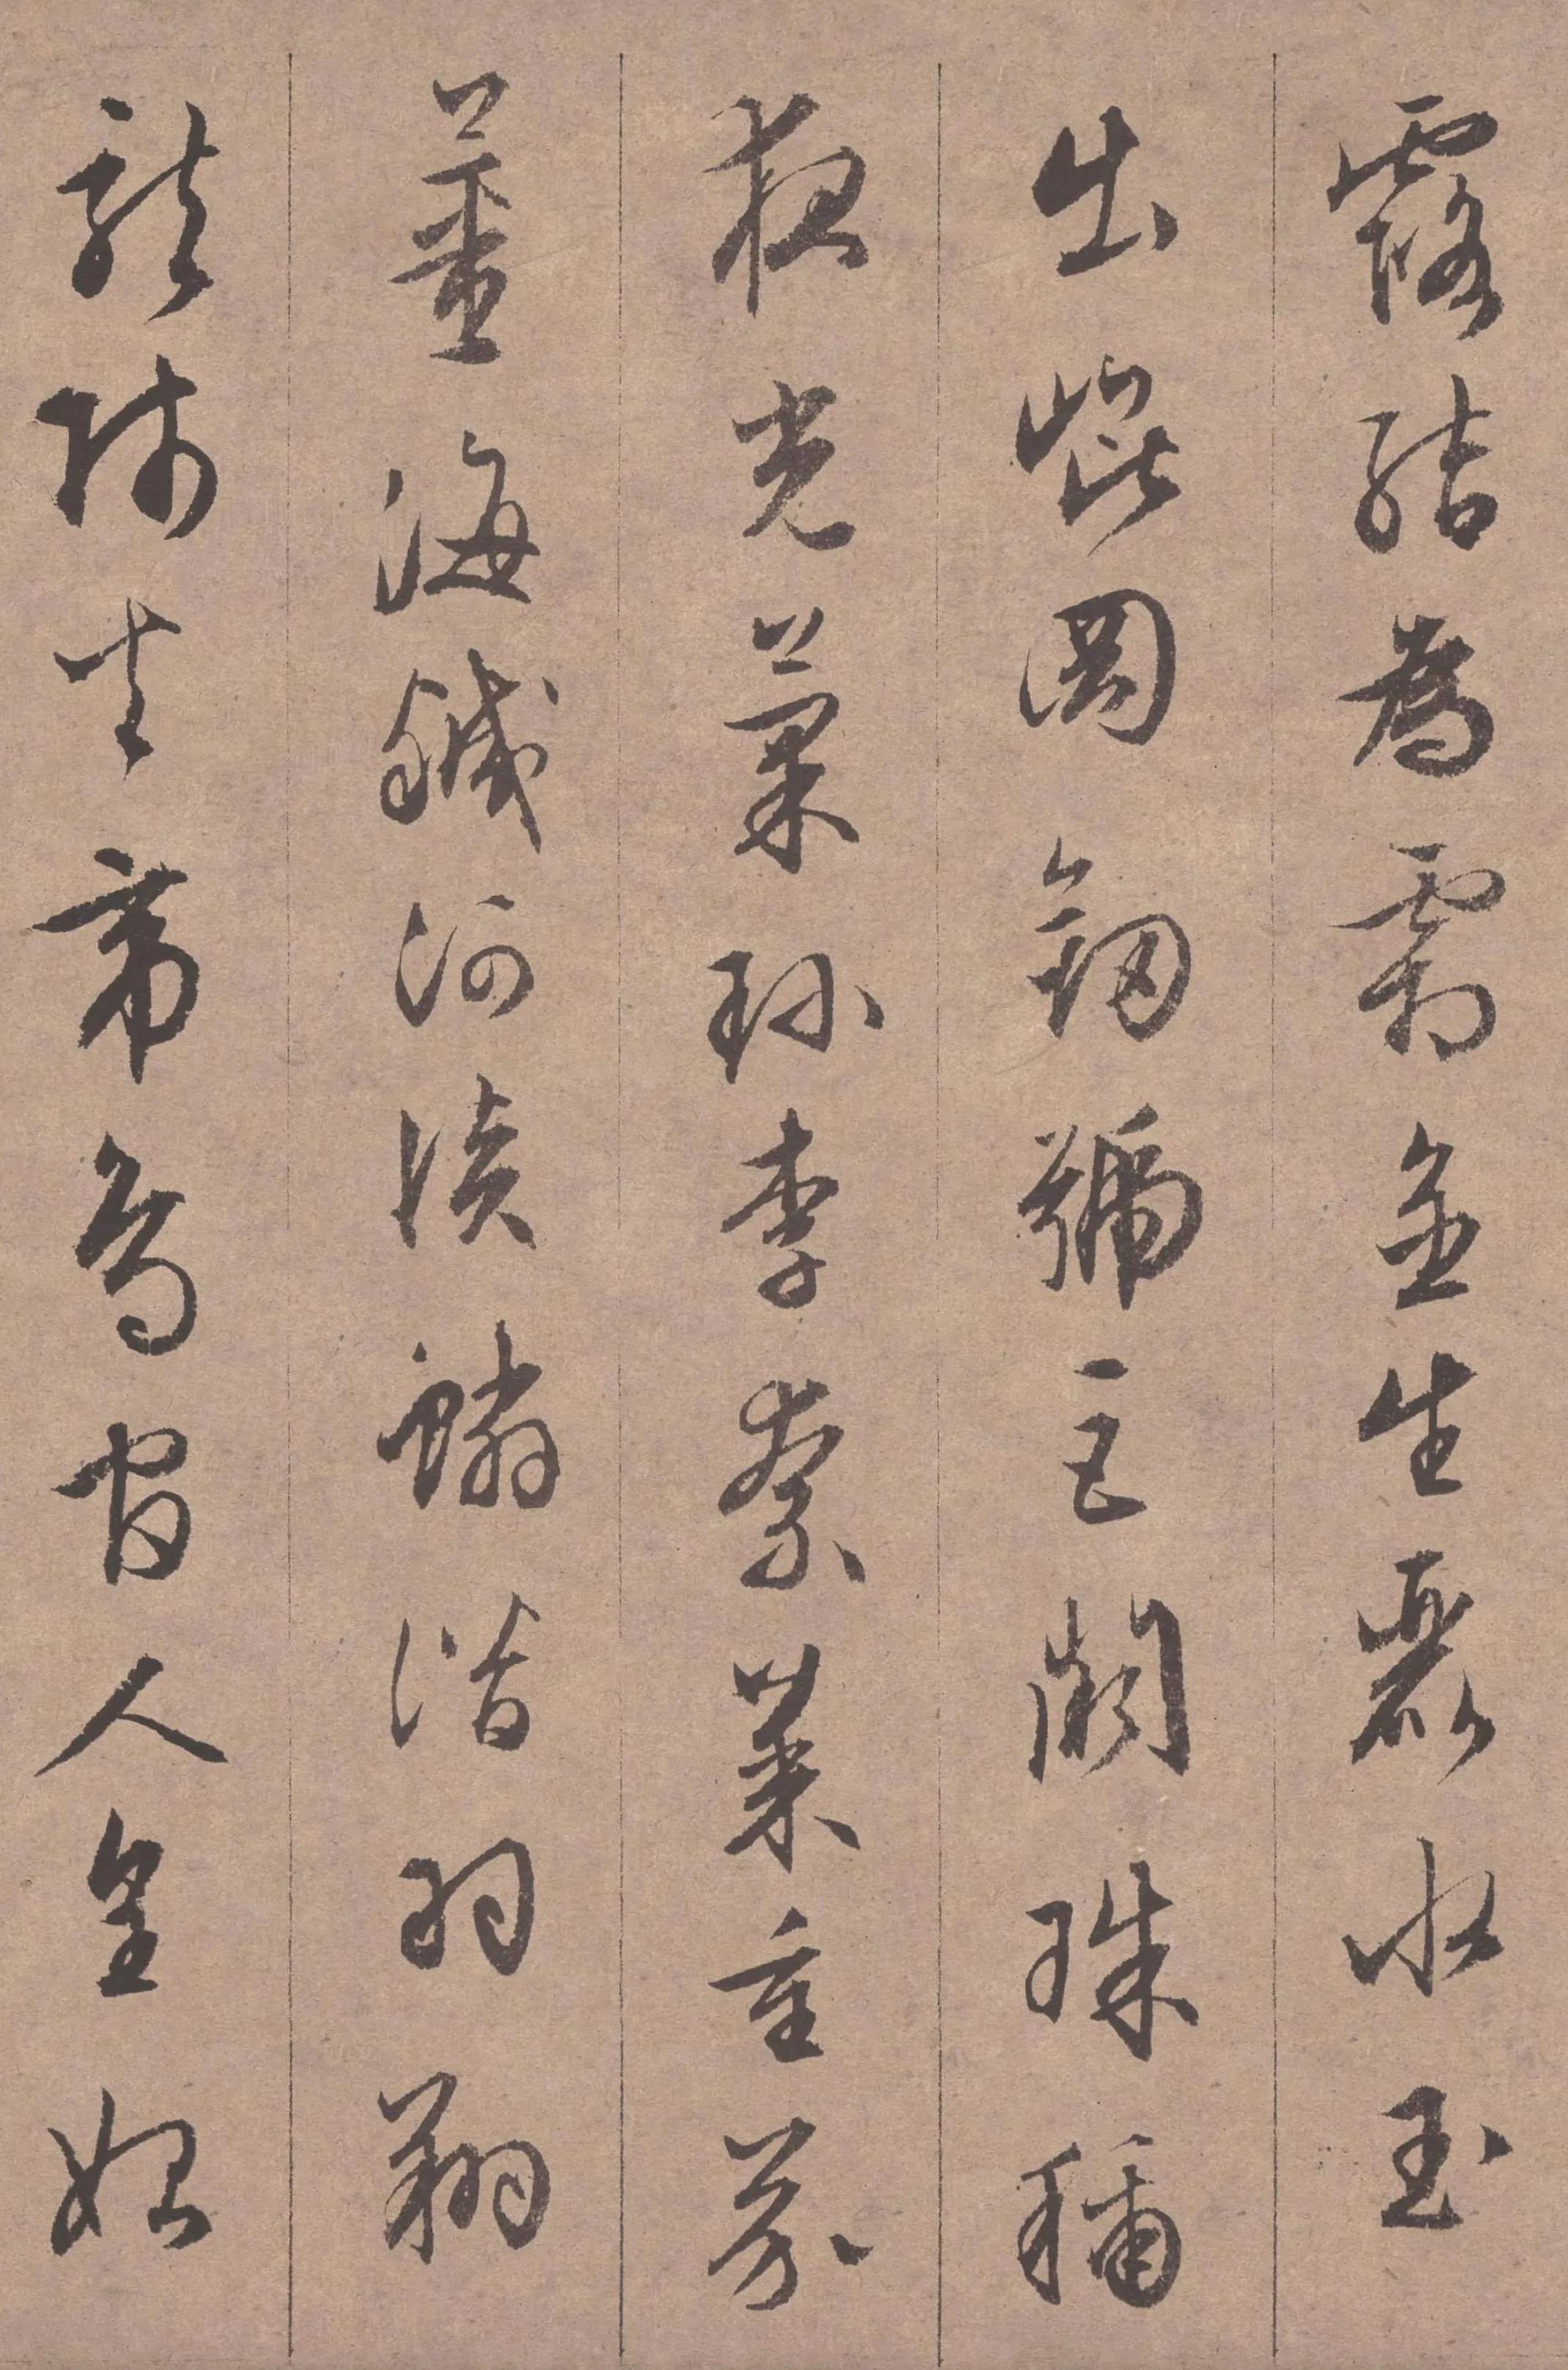 露結為霜金生麗水玉
出崐岡劒號巨闕珠稱
夜光菓珎李柰菜重芥
薑海鹹河淡鱗潛羽翔
龍師火帝鳥官人皇始